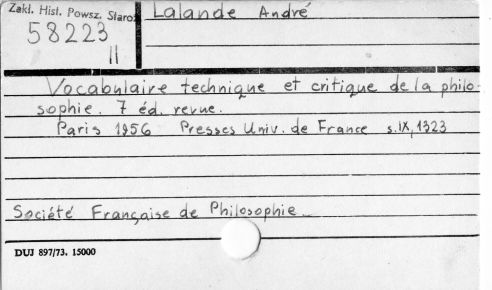 Zakł. Hist. Powsz. Staroż
58223
II
Lalande André
Vocabulaire technique et critique de la philo-
sophie. 7 éd. revue.
Paris 1956 Presses Univ. de France s.IX,1323
Société Française de Philosophie
DUJ 897/73. 15000